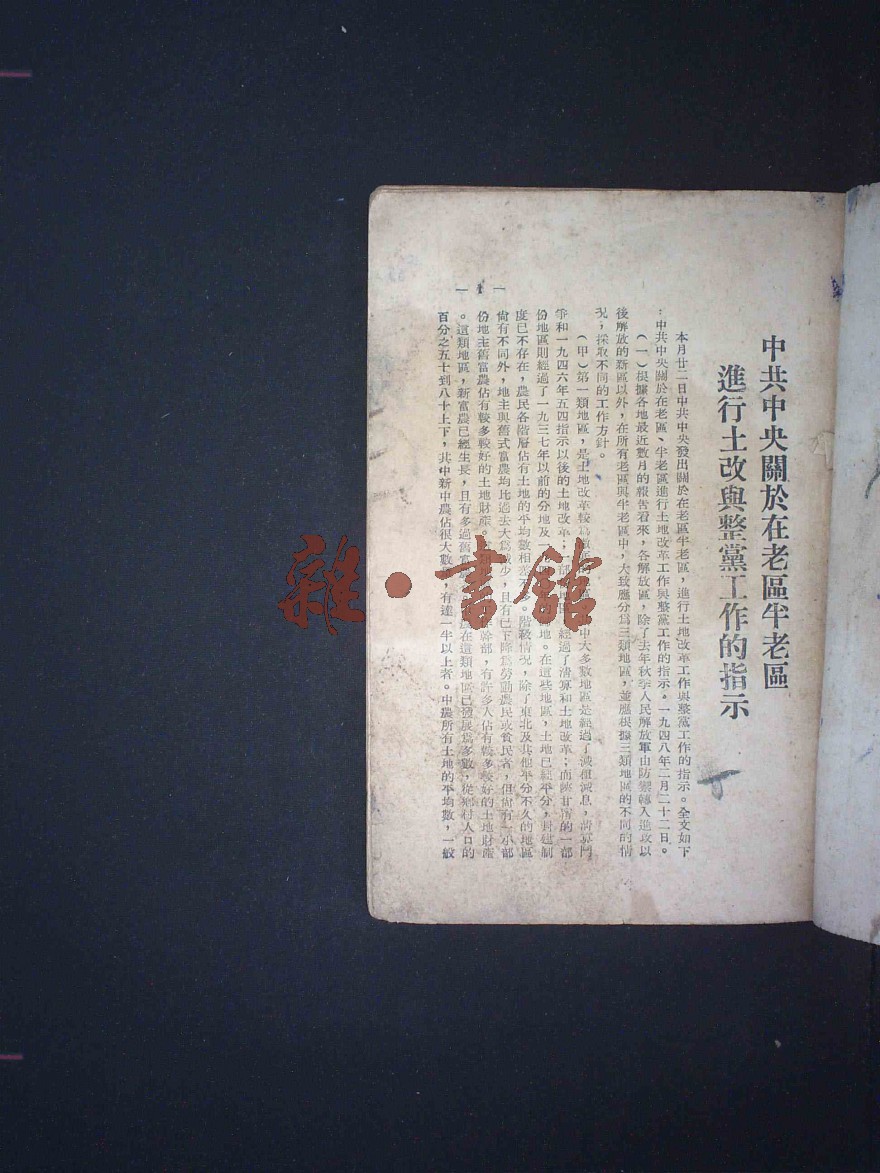 中共中央關於在老區半老區
進行土改與整黨工作的指示
本月廿二日中共中央發出關於在老區半老區,進行土地改革工作與整黨工作的指示。全文如下
:中共中央關於在老區、半老區進行土地改革工作與整黨工作的指示。一九四八年二月二十二日。
(一)根據各地最近數月的報告看來,各解放區,除了去年秋季人民解放軍由防禦轉入進攻以
後解放的新區以外,在所有老區與半老區中,大致應分爲三類地區,並應根據三類地區的不同的情
况,採取不同的工作方針。
(甲)第一類地區,是土地改革較爲 中大多數地區是經過了減租減息,清算鬥
爭和一九四六年五四指示以後的土地改革; 部 地區 經過了清算和土地改革;而陝甘寧的一部
份地區則經過了一九三七年以前的分地及一九四 地。在這些地區,土地已經平分,封建制
度已不存在,農民各階層佔有土地的平均數相差不多。階級情况,除了東北及其他平分不久的地區
尙有不同外,地主與舊式富農均比過去大爲減少,且有已下降爲勞動農民或貧民者,但尙有一小部
份地主舊富農佔有較多較好的土地財產。 幹部,有許多人佔有較多較好的土地財產
。這類地區,新富農已經生長,且有多過舊富 農在這類地區已發展爲多數,從鄉村人口的
百分之五十到八十上下,其中新中農佔很大數 有達一半以上者。中農所有土地的平均數,一般
— 1 —
雜·書館